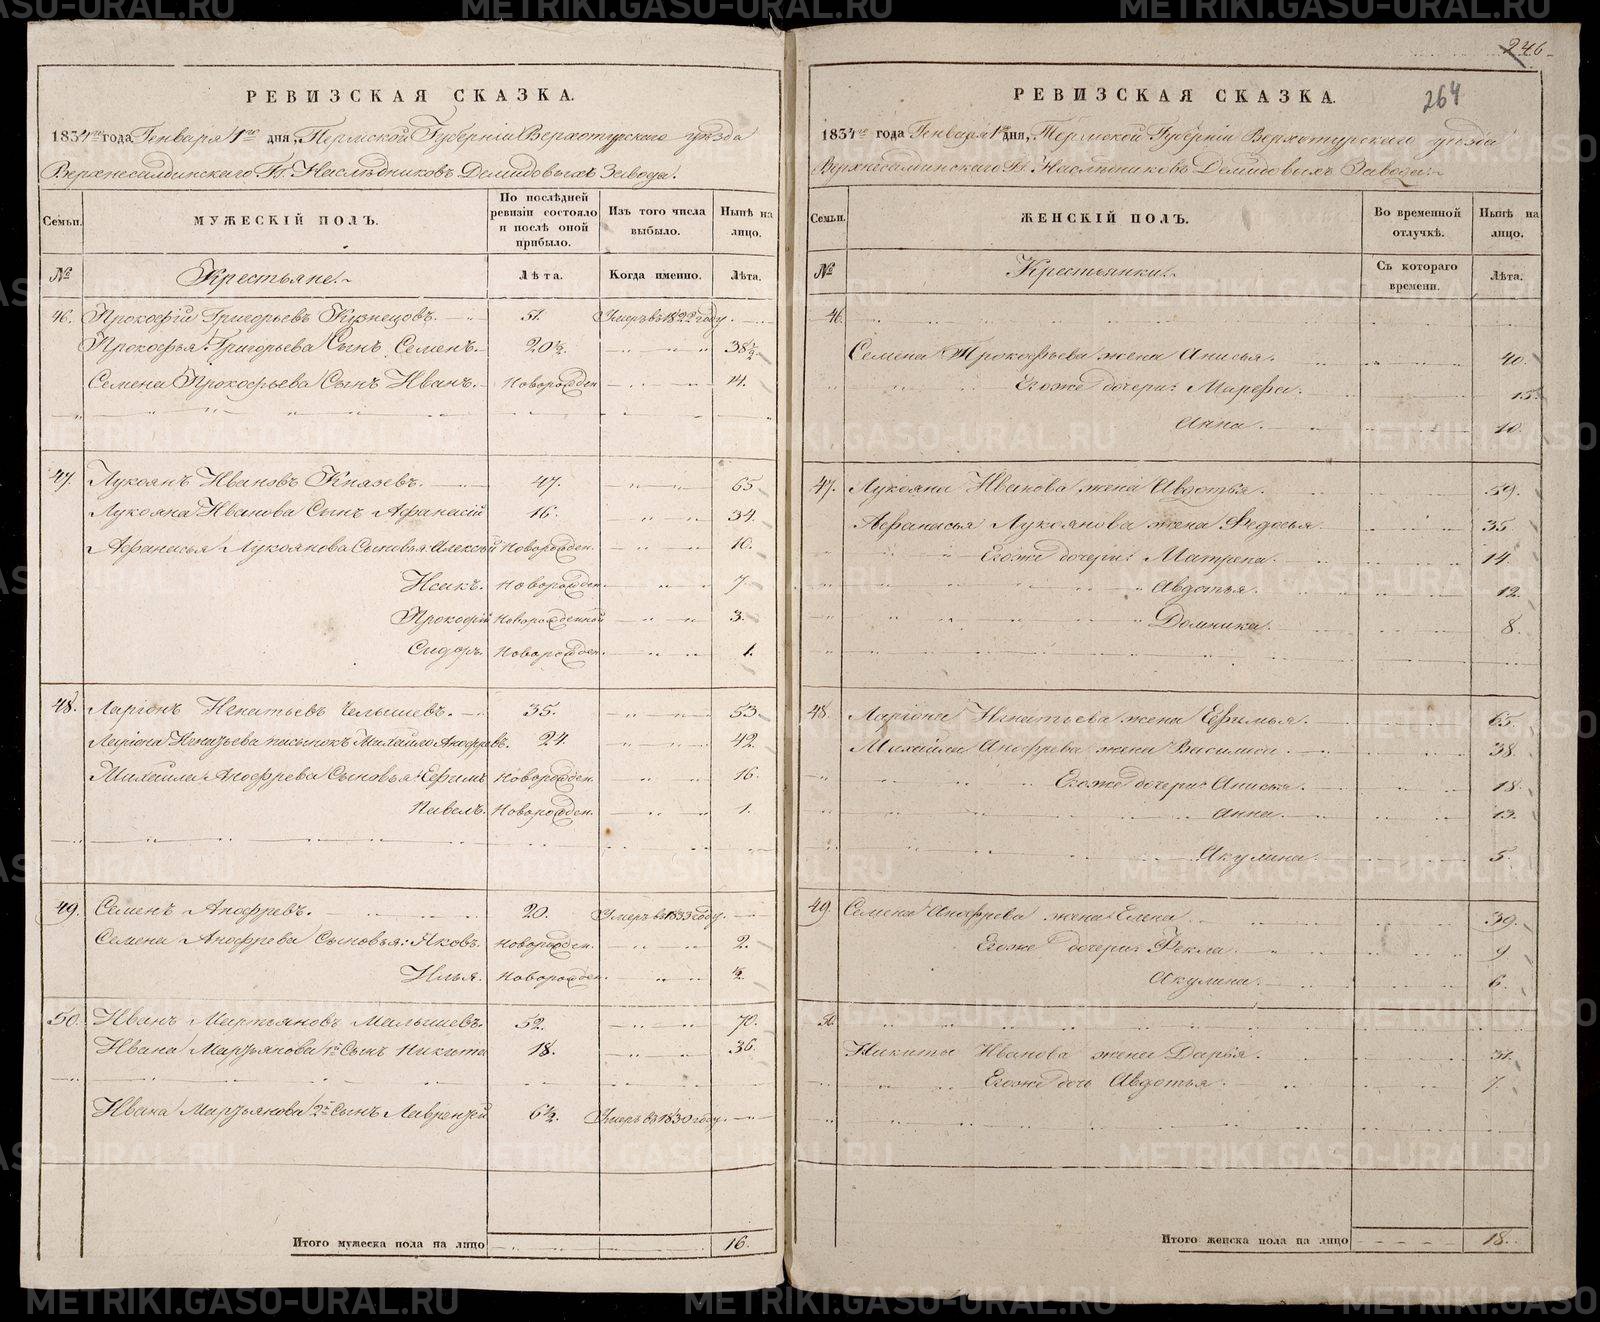 РЕВИЗСКАЯ СКАЗКА.
1834го года Генваря 1го дня, Пермской Губерніи Верхотурскаго уѣзда
Верхнесалдинскаго Гг. Наслѣдниковъ Демидовыхъ Завода.
Семьи.
МУЖЕСКІЙ ПОЛЪ.
По послѣдней ревизіи состояло и послѣ оной прибыло.
Изъ того числа выбыло.
Нынѣ на лицо.
№
Крестьяне.
Лѣта.
Когда именно.
Лѣта.
46. Прокофій Григорьевъ Кузнецовъ. 51. Умеръ въ 1822 году.
Прокофья Григорьева Сынъ Семенъ. 20½. 38½.
Семена Прокофьева Сынъ Иванъ. Новорожден 14.
47. Лукоянъ Ивановъ Князевъ. 47. 65.
Лукояна Иванова Сынъ Афанасій 16. 34.
Афанасья Лукоянова Сыновья: Алексѣй Новорожден. 10.
Исакъ. Новорожден. 7.
Прокофій Новорожденной 3.
Сидоръ. Новорожден. 1.
48. Ларіонъ Игнатьевъ Челышевъ. 35. 53.
Ларіона Игнатьева пасынокъ Михайло Анофревъ. 24. 42.
Михайла Анофрева Сыновья: Ефимъ Новорожден. 16.
Павелъ. Новорожден. 1.
49. Семенъ Анофревъ. 20. Умеръ въ 1833 году.
Семена Анофрева Сыновья: Яковъ. Новорожден. 2.
Илья. Новорожден. ½.
50. Иванъ Мартьяновъ Малышевъ. 52. 70.
Ивана Мартьянова 1й Сынъ Никита 18. 36.
Ивана Мартьянова 2й Сынъ Лаврентій 6½. Умеръ въ 1830 году.
Итого мужеска пола на лицо 16.
246
264
РЕВИЗСКАЯ СКАЗКА.
1834го года Генваря 1го дня, Пермской Губерніи Верхотурскаго уѣзда
Верхнесалдинскаго Гг. Наслѣдниковъ Демидовыхъ Завода.
Семьи.
ЖЕНСКІЙ ПОЛЪ.
Во временной отлучкѣ.
Нынѣ на лицо.
№
Крестьянки.
Съ котораго времени.
Лѣта.
46.
Семена Прокофьева жена Анисья. 40.
Егоже дочери: Марефа. 15.
Анна. 10.
47. Лукояна Иванова жена Авдотья. 59.
Афанасья Лукоянова жена Федосья. 35
Егоже дочери: Матрена. 14.
Авдотья. 12.
Домника. 8.
48. Ларіона Игнатьева жена Ефимья. 65.
Михайла Анофрева жена Василиса. 38.
Егоже дочери: Анисья. 18.
Анна. 13.
Акулина. 5.
49 Семена Анофрева жена Елена 39.
Егоже дочери: Фекла. 9
Акулина. 6.
50.
Никиты Иванова жена Дарья. 31.
Егоже дочь Авдотья. 7.
Итого женска пола на лицо 18.
METRIKI.GASO-URAL.RU